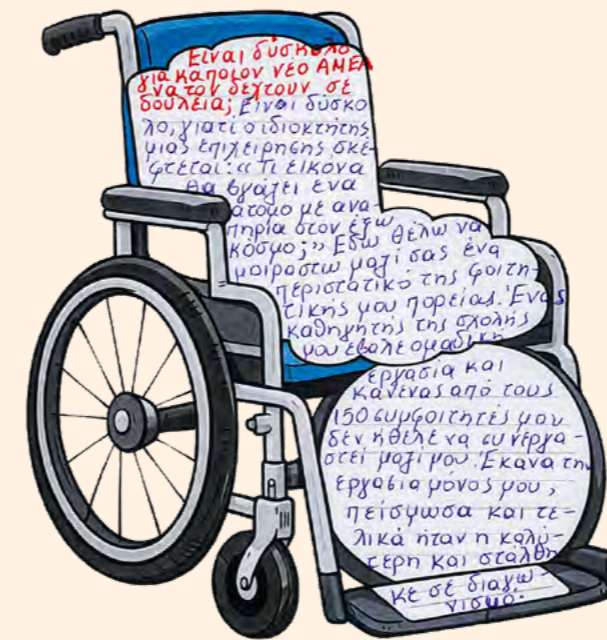 Είναι δύσκολο
για κάποιον νέο ΑΜΕΑ
να τον δεχτουν σε
δουλεια; Είναι δύσκο
λο, γιατί ο ιδιοκτήτης
μιας επιχειρησης σκέ-
φτεται: «Τι εικόνα
θα βγάζει ένα
άτομο με ανα-
πηρία στον έξω
κόσμο;» Εδώ θέλω να
μοιραστώ μαζί σας ένα
περιστατικό της φοιτη-
τικής μου πορείας. Ένας
καθηγητής της σχολής
μου έβαλε ομαδική
εργασία και
κανένας από τους
150 συμφοιτητές μου
δεν ήθελε να συνεργα-
στεί μαζί μου. Έκανα την
εργασία μόνος μου,
πείσμωσα και τε-
λικά ήταν η καλύ-
τερη και στάλθη
κε σε διαγω-
νισμό.